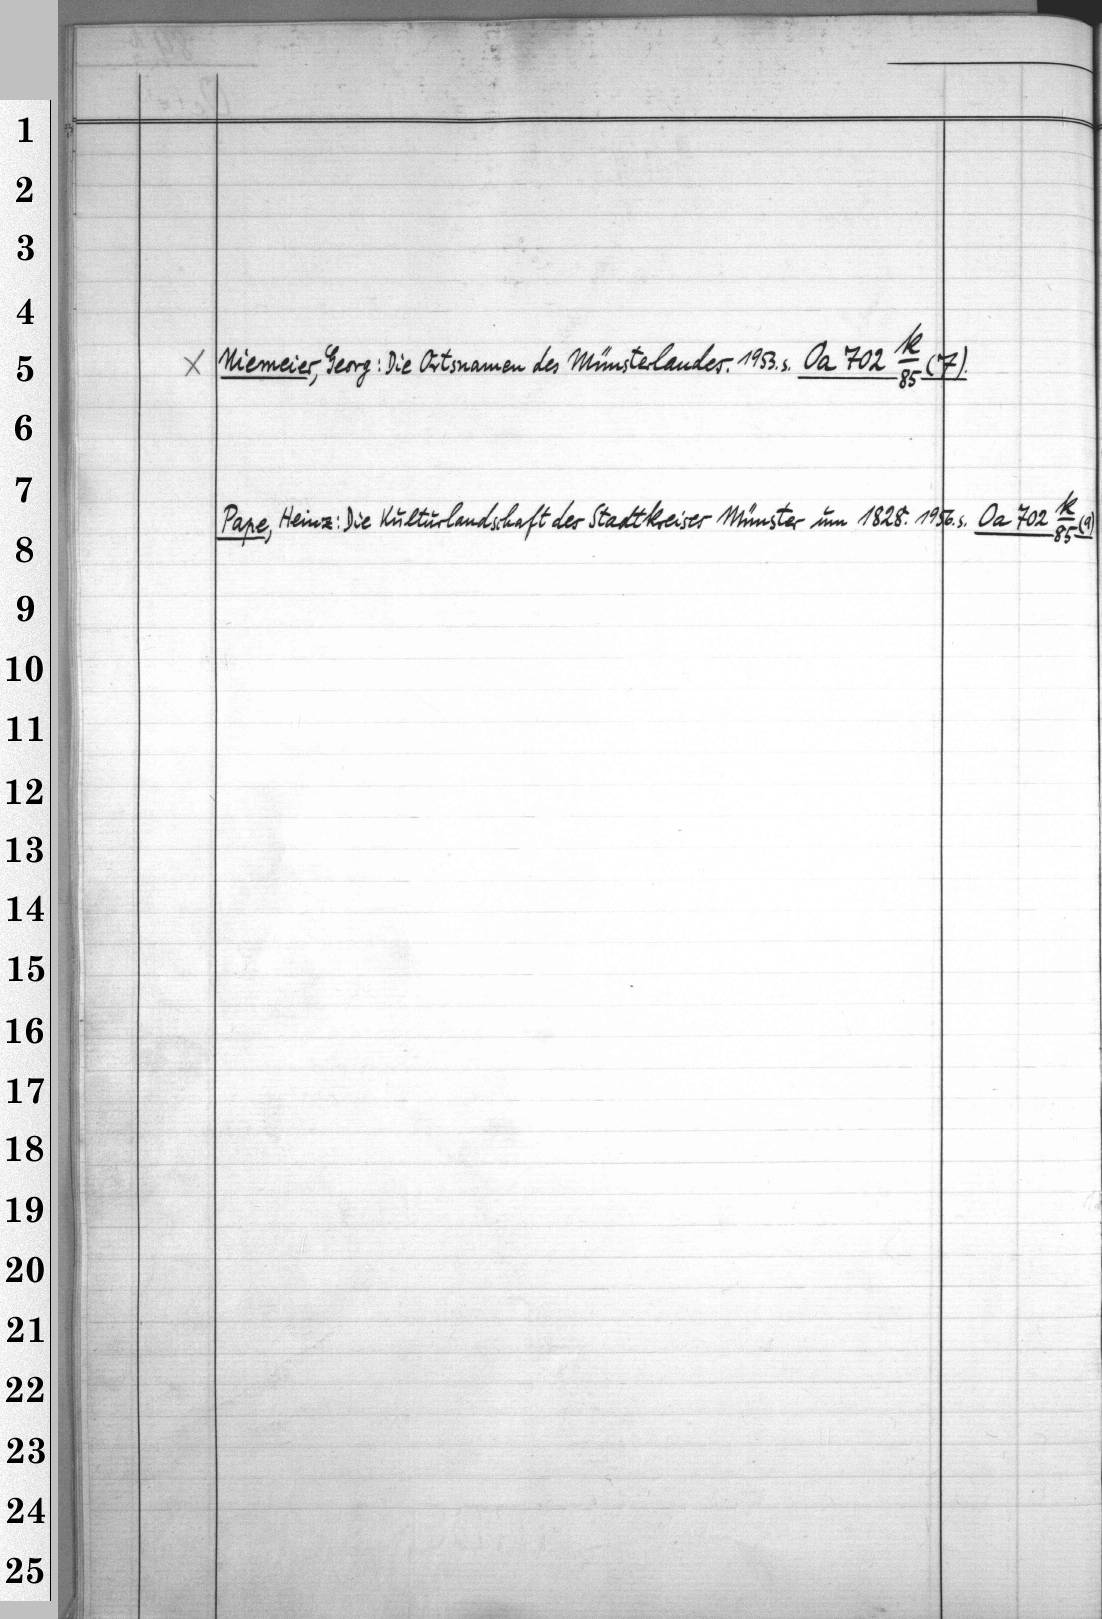 1
2
3
4
× Niemeier, Georg: Die Ortsnamen des Münsterlandes. 1953. s. Oa 702 k/85 (7).
5
6
7
Pape, Heinz: Die Kulturlandschaft des Stadtkreises Münster um 1828. 1956. s. Oa 702 k/85 (9)
8
9
10
11
12
13
14
15
16
17
18
19
20
21
22
23
24
25